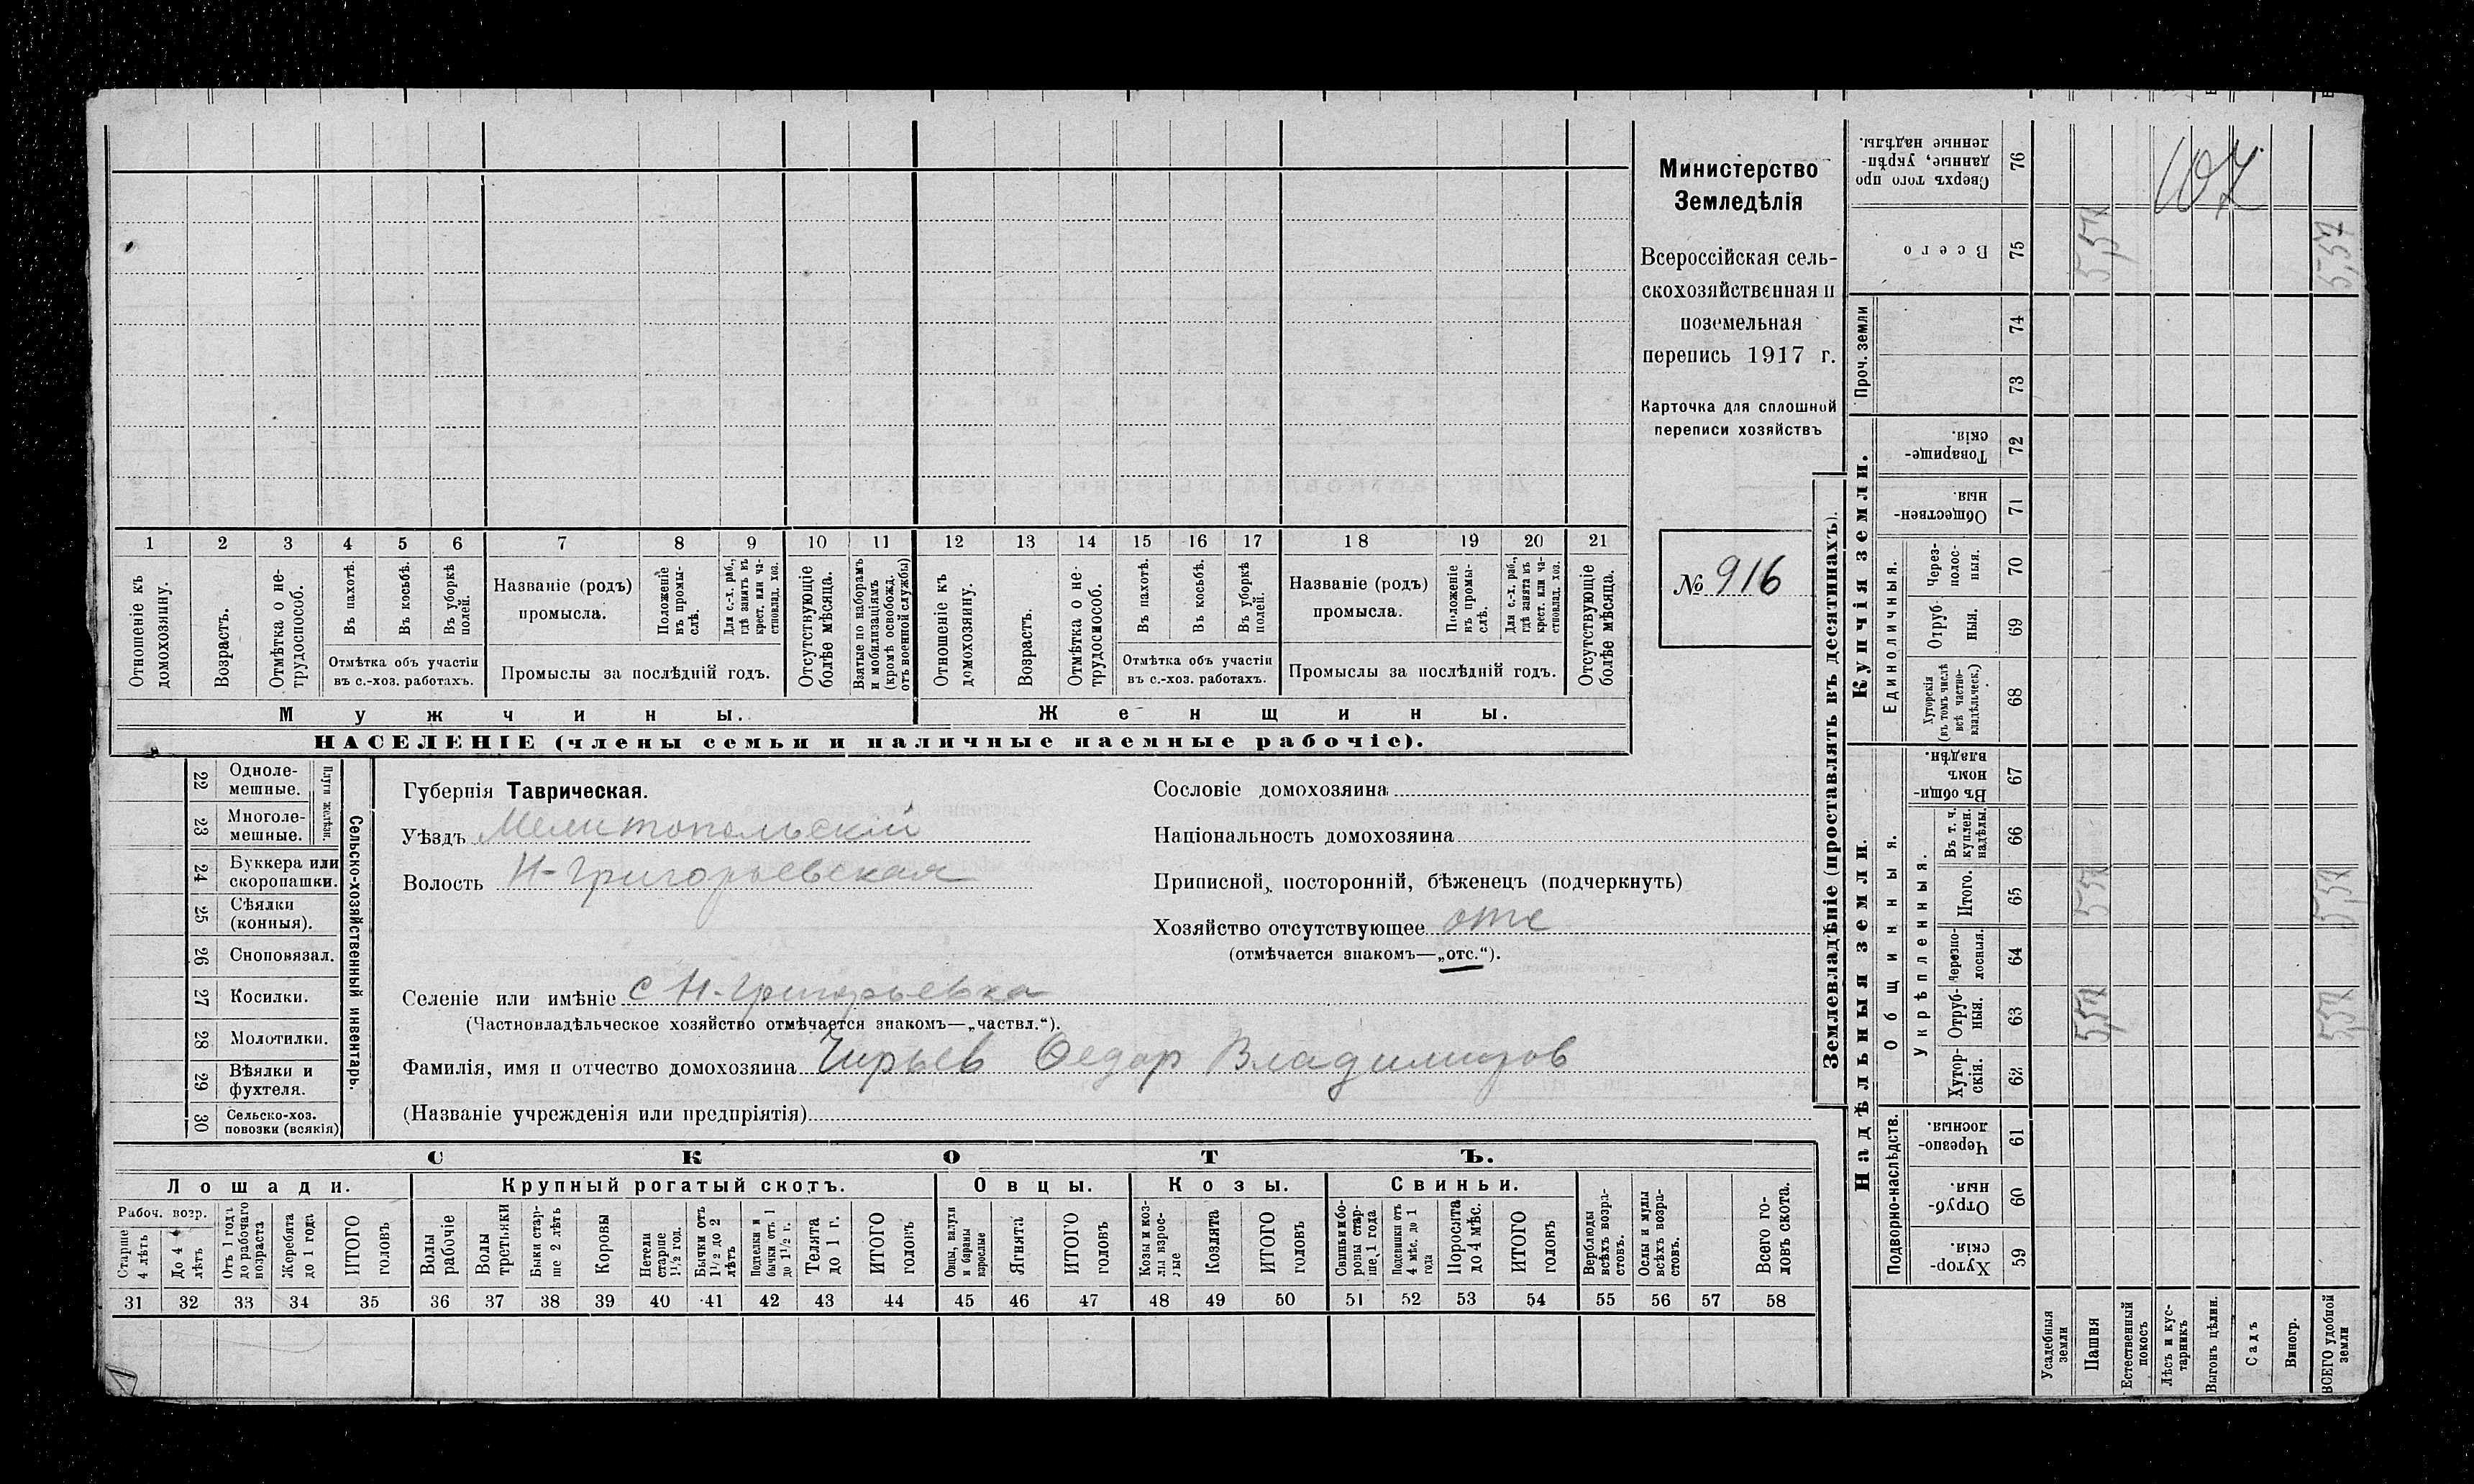 Министерство
Земледѣлія
Всероссійская сель-
скохозяйственная и
поземельная
перепись 1917 г.
Карточка для сплошной
переписи хозяйствъ
№ 916
1 2 3 4 5 6 7 8 9 10 11 12 13 14 15 16 17 18 19 20 21
Отношеніе къ домохозяину.
Возрастъ.
Отмѣтка о не-трудоспособ.
Въ пахотѣ.
Въ косьбѣ.
Въ уборкѣ полей.
Отмѣтка объ участіи
въ с.-хоз. работахъ.
Названіе (родъ)
промысла.
Положеніе въ промы-слѣ.
Для с.-х. раб., гдѣ занятъ въ крест. или ча-стновлад. хоз.
Промыслы за послѣдній годъ.
Отсутствующіе болѣе мѣсяца.
Взятые по наборамъ и мобилизаціямъ (кромѣ освобожд. отъ военной службы)
Отношеніе къ домохозяину.
Возрастъ.
Отмѣтка о не-трудоспособ.
Въ пахотѣ.
Въ косьбѣ.
Въ уборкѣ полей.
Отмѣтка объ участіи
въ с.-хоз. работахъ.
Названіе (родъ)
промысла.
Положеніе въ промы-слѣ.
Для с.-х. раб., гдѣ занята въ крест. или ча-стновлад. хоз.
Промыслы за послѣдній годъ.
Отсутствующіе болѣе мѣсяца.
Мужчины.
Женщины.
НАСЕЛЕНІЕ (члены семьи и наличные наемные рабочіе).
22 Одноле-мешные.
23 Многоле-мешные.
Плуги желѣзн.
24 Буккера или скоропашки.
25 Сѣялки (конныя).
26 Сноповязал.
27 Косилки.
28 Молотилки.
29 Вѣялки и фухтеля.
30 Сельско-хоз. повозки (всякія)
Сельско-хозяйственный инвентарь.
Губернія Таврическая.
Уѣздъ Мелитопольскій
Волость Н-Григорьевская
Сословіе домохозяина
Національность домохозяина
Приписной, посторонній, бѣженецъ (подчеркнуть)
Хозяйство отсутствующее отс
(отмѣчается знакомъ—„отс.“).
Селеніе или имѣніе с Н-Григорьевка
(Частновладѣльческое хозяйство отмѣчается знакомъ—„частвл.“).
Фамилія, имя и отчество домохозяина Чирьев Федор Владимиров
(Названіе учрежденія или предпріятія)
СКОТЪ.
Лошади.
Крупный рогатый скотъ.
Овцы.
Козы.
Свиньи.
Рабоч. возр.
Старше 4 лѣтъ
До 4 лѣтъ
Отъ 1 года до рабочаго возраста
Жеребята до 1 года
ИТОГО головъ
Волы рабочіе
Волы третьяки
Быки стар-ше 2 лѣтъ
Коровы
Нетели старше 1½ год.
Бычки отъ 1½ до 2 лѣтъ
Подтелки и бычки отъ 1 до 1½ г.
Телята до 1 г.
ИТОГО головъ
Овцы, валухи и бараны взрослые
Ягнята
ИТОГО головъ
Козы и коз-лы взрос-лые
Козлята
ИТОГО головъ
Свиньи и бо-ровы стар-ше 1 года
Подсвинки отъ 4 мѣс. до 1 года
Поросята до 4 мѣс.
ИТОГО головъ
Верблюды всѣхъ возра-стовъ.
Ослы и мулы всѣхъ возра-стовъ.
Всего го-ловъ скота.
31 32 33 34 35 36 37 38 39 40 41 42 43 44 45 46 47 48 49 50 51 52 53 54 55 56 57 58
Землевладѣніе (проставлять въ десятинахъ).
Купчія земли.
Надѣльныя земли.
Сверхъ того про данные, укрѣп-ленные надѣлы. 76
107
Всего 75 5,57 5,57
Проч. земли
74
73
Товарище-скія. 72
Обществен-ныя. 71
Единоличныя.
Через-полос-ныя. 70
Отруб-ныя. 69
Хуторскія (въ томъ числѣ всѣ частно-владѣльческ.) 68
Общинныя.
Въ общи-номъ владѣн. 67
Укрѣпленныя.
Въ т. ч. куплен. надѣлы. 66
Итого. 65 5,57 5,57
Черезпо-лосныя. 64
Отруб-ныя. 63 5,57 5,57
Хутор-скія. 62
Подворно-наслѣдств.
Черезпо-лосныя. 61
Отруб-ныя. 60
Хутор-скія. 59
Усадебныя земли
Пашня
Естественный покосъ
Лѣсъ и кус-тарникъ
Выгонъ цѣлин.
Садъ
Виногр.
ВСЕГО удобной земли